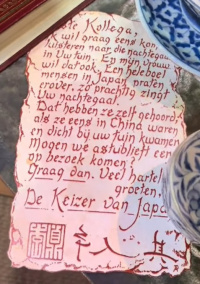 te Kollega,
k wil graag eens kom
luisteren naar die nachtegaal
in Uw tuin. En mijn vrouw
wil dat ook. Een heleboel
mensen in Japan praten
erover, zo prachtig zingt
Uw nachtegaal.
Dat hebben ze zelf gehoord
als ze eens in China waren
en dicht bij uw tuin kwamen
mogen we astublieft een
op bezoek komen?
Graag dan. Veel hartel
groeten,
De Keizer van Japa